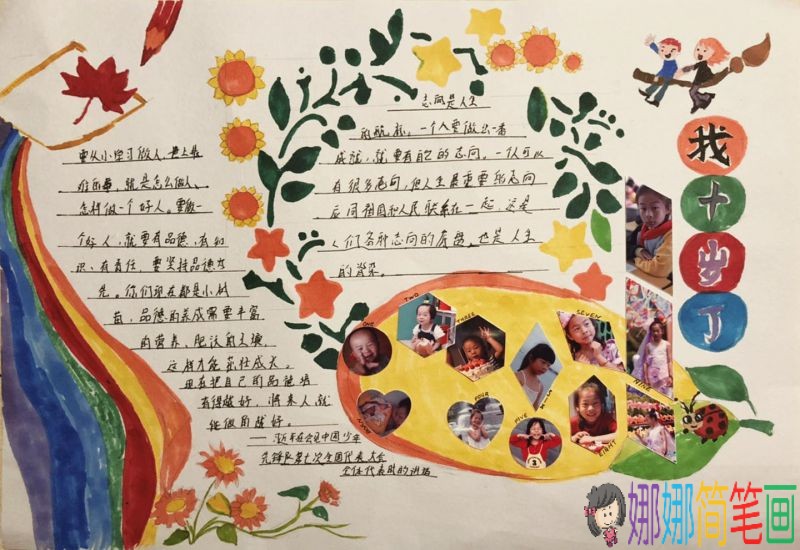 我
十
岁
了
要从小学习做人，世上最
难的事，就是怎么做人、
怎样做一个好人。要做一
个好人，就要有品德、有知
识、有责任，要坚持品德为
先。你们现在都是小树
苗，品德的养成需要丰富
的营养、肥沃的土壤，
这样才能茁壮成长。
现在把自己的品德培
育得越好，将来人就
能做得越好。
志向是人生
的航标。一个人要做出一番
成就，就要有自己的志向。一个人可以
有很多志向，但人生最重要的志向
应同祖国和人民联系在一起，这是
人们各种志向的底盘，也是人生
的脊梁。
ONE
TWO
THREE
FOUR
FIVE
SEVEN
EIGHT
NINE
娜娜简笔画